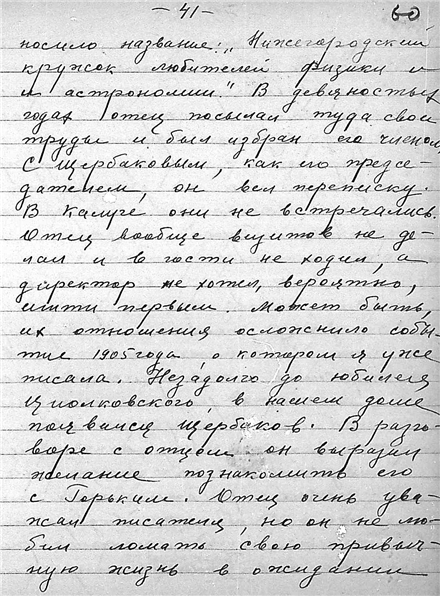 - 41 -
60
носило название: „Нижегородский
кружок любителей физики и
и астрономии." В девяностых
годах отец посылал туда свои
труды и был избран его членом.
С Щербаковым, как его предсе-
дателем, он вел переписку.
В Калуге они не встречались.
Отец вообще визитов не де-
лал и в гости не ходил, а
директор не хотел, вероятно,
итти первым. Может быть,
их отношения осложнило собы-
тие 1905 года, о котором я уже
писала. Незадолго до юбилея
Циолковского, в нашем доме
появился Щербаков. В разго-
воре с отцом он выразил
желание познакомить его
с Горьким. Отец очень ува-
жал писателя, но он не лю-
бил ломать свою привыч-
ную жизнь в ожидании